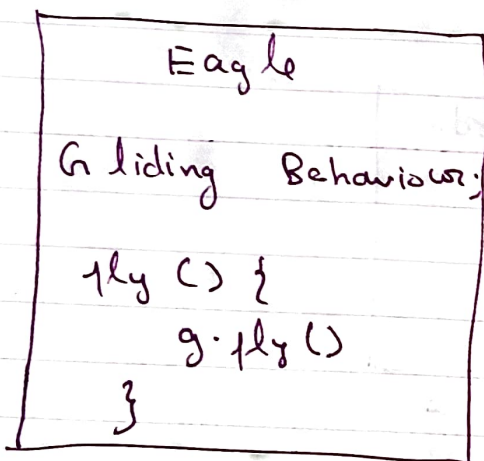 Eagle
Gliding Behaviour;
fly () {
g.fly ()
}